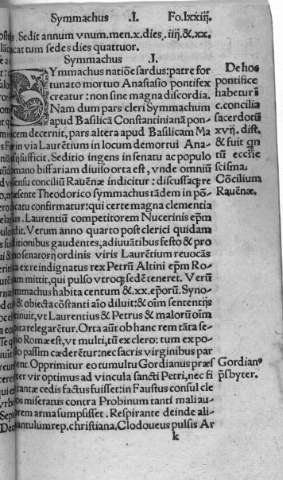 Symmachus .I. Fo.lxxiij.
Sedit annum vnum.men.x.dies.iiij.&.xx.
cat tum sedes dies quattuor.
Symmachus .I.
SYmmachus natiõe sardus: patre for
tunato mortuo Anastasio pontifex
creatur: non sine magna discordia.
Nam dum pars cleri Symmachum
apud Basilicã Constantinianã pon-
cem decernit, pars altera apud Basilicam Ma
in via Laurentium in locum demortui Ana-
sufficit. Seditio ingens in senatu ac populo
mano biffariam diuiso orta est, vnde omniũ
sensu conciliũ Rauẽnæ indicitur: discussaq; re
sente Theodorico symmachus tãdem in põ
catu confirmatur: qui certe magna clementia
Laurentiũ competitorem Nucerinis ep̃m
dit. Verum anno quarto post clerici quidam
ditionibus gaudentes, adiuuãtibus festo & pro
no senatorij ordinis viris Laurentium reuocãs
ex re indignatus rex Petrũ Altini ep̃m Ro-
mittit, qui pulso vtroq; sedẽ teneret. Verũ
machus habita centum &.xx.ep̃orũ. Syno-
& obiecta cõstanti aĩo diluit: & oĩm sententijs
vt Laurentius & Petrus & malorũ oĩm
relegarẽtur. Orta aũt ob hanc rem tãta se-
Romæ est, vt multi, tũ ex clero: tum ex po-
passim cæderẽtur: nec sacris virginibus par
Opprimitur eo tumultu Gordianus præs
ter vir optimus ad vincula sancti Petri, nec fi
cedis factus fuisset: in Faustus consul cle
miseratus contra Probinum tanti mali au-
rem arma sumpsisset. Respirante deinde ali-
tantulum rep. christiana, Clodoueus pulsis Ar
k
De hos
pontifice
habetur ĩ
c.concilia
sacerdotũ
xvij. dist.
& fuit qñ
tũ ecclie
scisma.
Cõcilium
Rauẽnæ.
Gordian9
p̃sbyter.